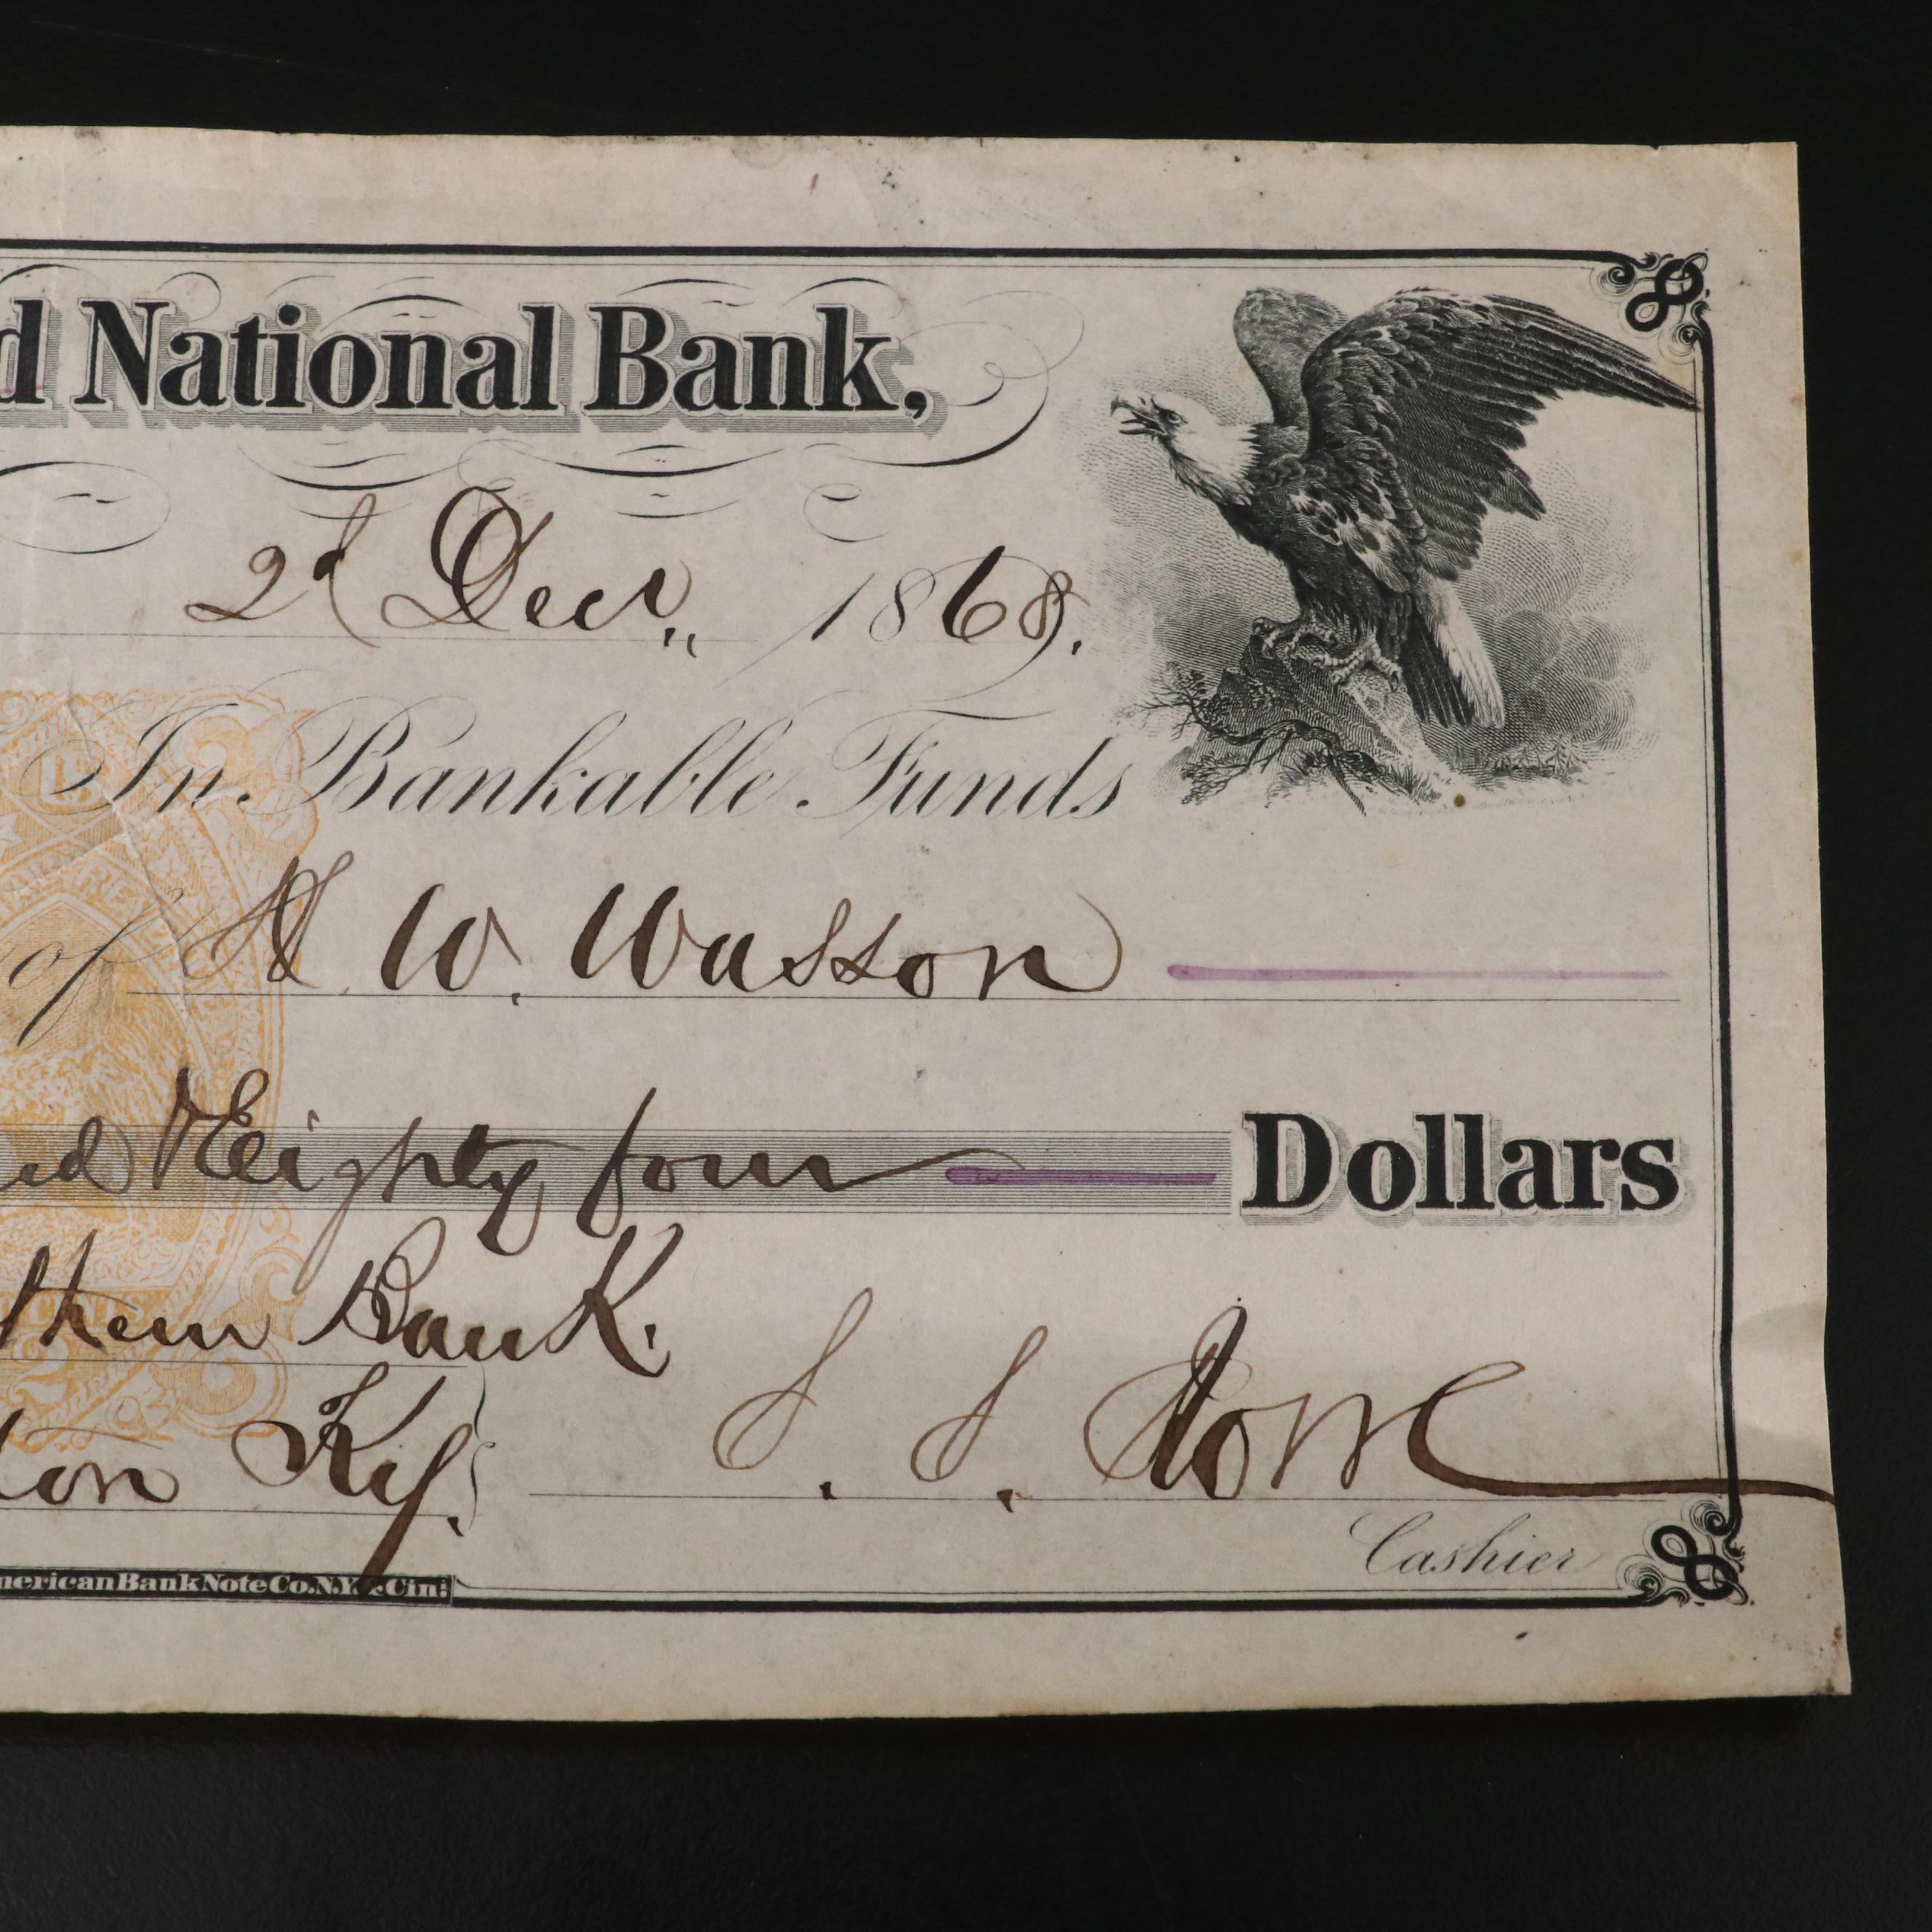 d National Bank,
2d Decr., 1868.
In Bankable Funds
of W. Wasson
Eighty four Dollars
thern Bank.
ton Ky. S. S.
Cashier
merican Bank Note Co. N.Y. & Cin.